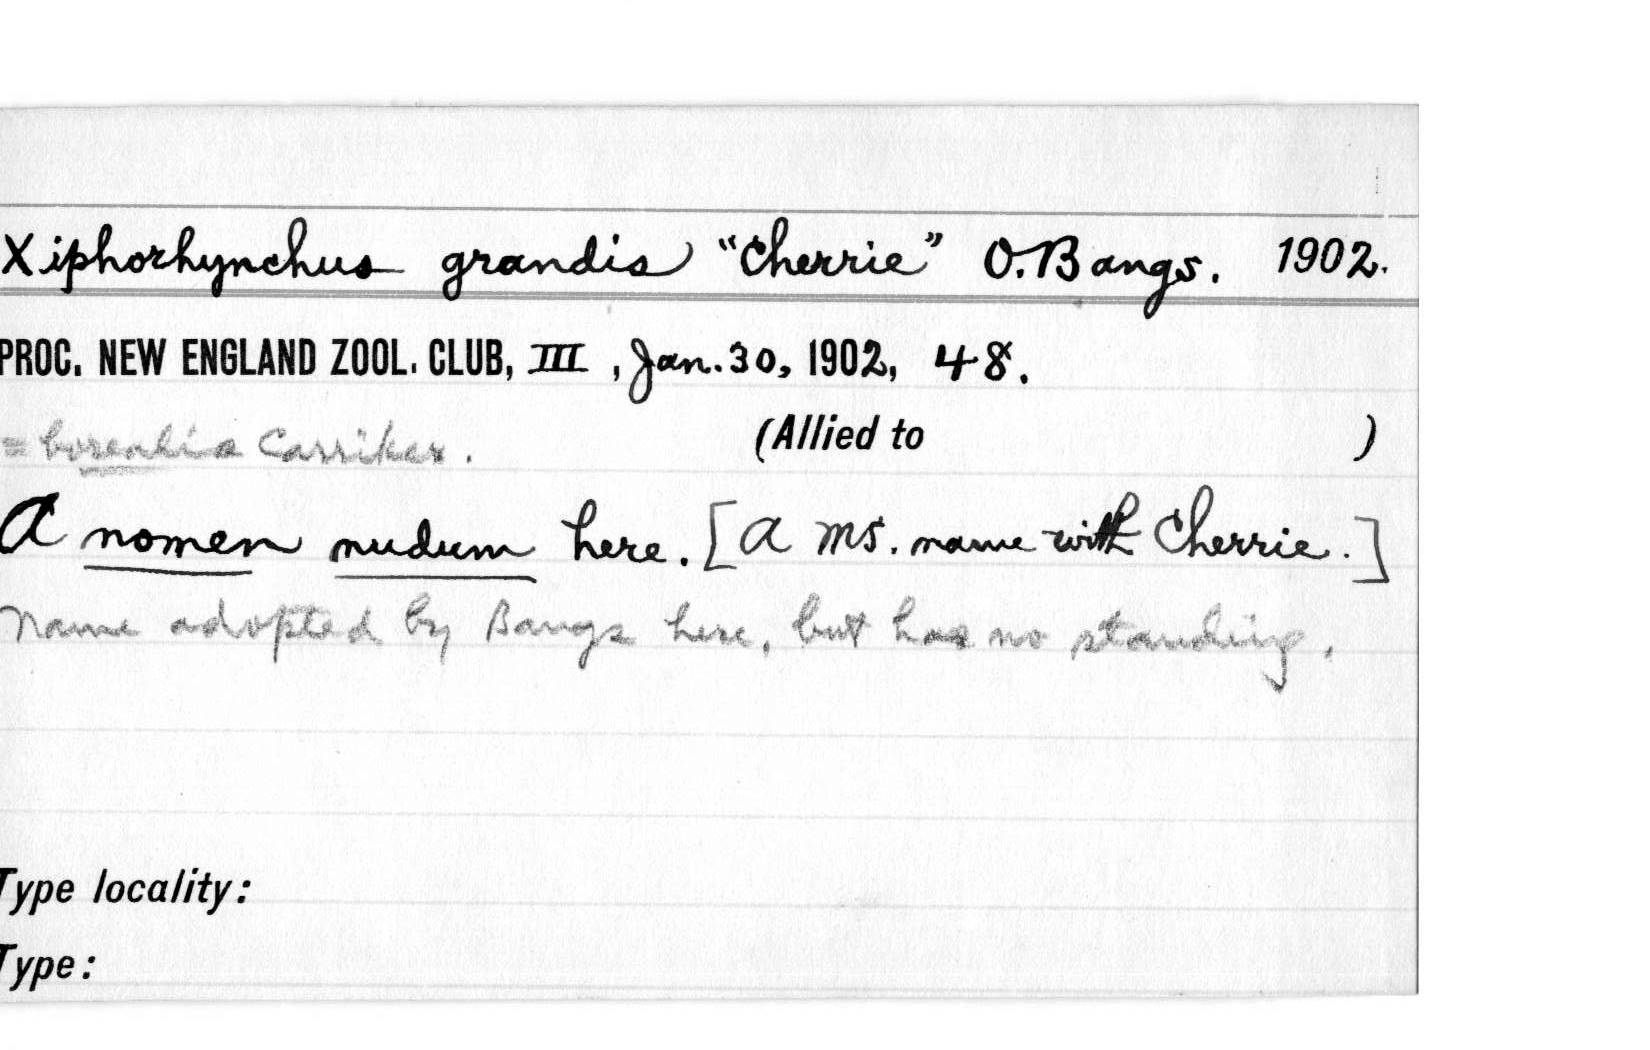 Xiphorhynchus grandis "Cherrie" O. Bangs. 1902.
PROC. NEW ENGLAND ZOOL. CLUB, III, Jan. 30, 1902, 48.
= borealis Carriker. (Allied to )
A nomen nudum here. [A MS. name with Cherrie.]
Name adopted by Bangs here, but has no standing.
Type locality:
Type: